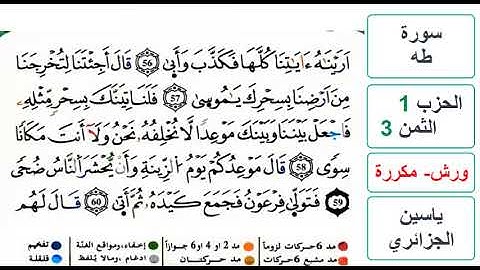 أَرَيْنَٰهُ ءَايَٰتِنَا كُلَّهَا فَكَذَّبَ وَأَبَىٰ 56 قَالَ أَجِئْتَنَا لِتُخْرِجَنَا
مِنْ أَرْضِنَا بِسِحْرِكَ يَٰمُوسَىٰ 57 فَلَنَاتِيَنَّكَ بِسِحْرٍ مِّثْلِهِۦ
فَاجْعَلْ بَيْنَنَا وَبَيْنَكَ مَوْعِدًا لَّا نُخْلِفُهُۥ نَحْنُ وَلَا أَنتَ مَكَانًا
سِوًى 58 قَالَ مَوْعِدُكُمْ يَوْمُ الزِّينَةِ وَأَنْ يُّحْشَرَ النَّاسُ ضُحًى
59 فَتَوَلَّىٰ فِرْعَوْنُ فَجَمَعَ كَيْدَهُۥ ثُمَّ أَتَىٰ 60 قَالَ لَهُم
مد 6 حركات لزوماً مد 2 أو 4 أو 6 جوازاً إخفاء، ومواقع الغنة تفخيم
مد مشبع 6 حركات مد حركتان ادغام، ومالا يُلفظ قلقلة
سورة
طه
الحزب 1
الثمن 3
ورش- مكررة
ياسين
الجزائري